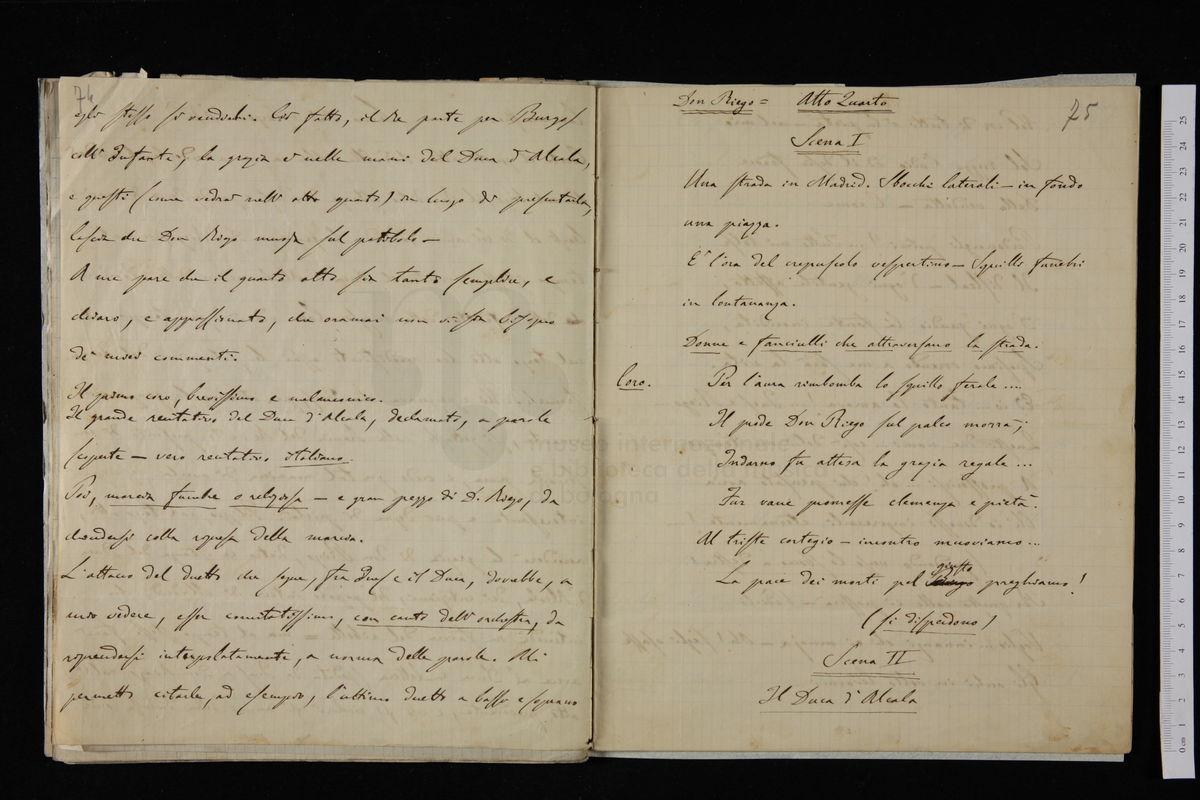 74
egli stesso si vendichi. Ciò fatto, il Re parte per Burgos
coll'Infante; la grazia è nelle mani del Duca d'Alcala,
e questi (come vedrà nell'atto quarto) in luogo di presentarla,
lascia che Don Riego muoja sul patibolo —
A me pare che il quarto atto sia tanto semplice, e
chiaro, e appassionato, che oramai non vi sia bisogno
di miei commenti.
Il primo coro, brevissimo e melanconico.
Il grande recitativo del Duca d'Alcala, declamato, a parole
scoperte — vero recitativo italiano.
Poi, marcia funebre o religiosa — e gran pezzo di D. Riego, da
chiudersi colla ripresa della marcia.
L'attacco del duetto che segue, fra e il Duca, dovrebbe, a
mio vedere, esser concitatissimo, con canto dell'orchestra, da
riprendersi interpolatamente, a norma delle parole. Mi
permetto citarle, ad esempio, l'ultimo duetto a basso e soprano
Don Riego = Atto Quarto
75
Scena I
Una strada in Madrid. Sbocchi laterali — in fondo
una piazza.
E' l'ora del crepuscolo vespertino — Squilli funebri
in lontananza.
Donne e fanciulli che attraversano la strada.
Coro. Per l'aura rimbomba lo squillo ferale ....
Il prode Don Riego sul palco morrà;
Indarno fu attesa la grazia regale ...
Fur vane promesse clemenza e pietà.
Al triste cortegio — incontro muoviamo ...
La pace dei morti pel giusto preghiamo!
(si disperdono)
Scena II
Il Duca d'Alcala
museo internazionale
e biblioteca della
bologna
0 cm 1 2 3 4 5 6 7 8 9 10 11 12 13 14 15 16 17 18 19 20 21 22 23 24 25